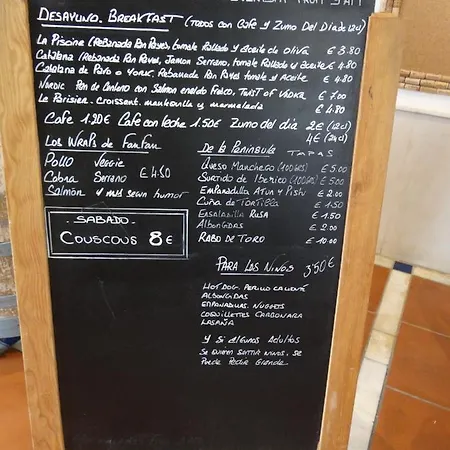 FRUIT
DESAYUNO. BREAKFAST (TODOS CON CAFE Y ZUMO DEL DIA DE 12cl)
LA PISCINE (REBANADA PAN PAYES, TOMATE RALLADO Y ACEITE DE OLIVA € 3.80
CATALANA (REBANADA PAN PAYES, JAMON SERRANO, TOMATE RALLADO Y ACEITE € 4.80
CATALANA DE PAVO O YORK. REBANADA PAN PAYES TOMATE Y ACEITE € 4.80
NORDIC PAN DE CENTENO CON SALMON ENELDO FRESCO, TWIST OF VODKA € 7.00
LA PARISIENE. CROISSENT. MANTEQUILLA Y MARMELADA € 4.80
CAFE 1.20€ CAFE CON LECHE 1.50€ ZUMO DEL DIA 2€ (12cl)
4€ (24cl)
LOS WRAPS DE FANFAN
POLLO VEGGIE
CABRA SERRANO € 4.50
SALMÓN Y MAS SEGUN HUMOR
SABADO
COUSCOUS 8€
DE LA PENINSULA TAPAS
QUESO MANCHEGO (100GRS) € 5.00
SURTIDO DE IBERICO (100GRS) € 5.00
EMPANADILLA ATUN Y PISTO € 2.00
CUÑA DE TORTILLA € 1.50
ENSALADILLA RUSA € 1.50
ALBONGIDAS € 2.00
RABO DE TORO € 10.00
PARA LOS NINOS 3'50€
HOT DOG. PERRITO CALIENTE
ALBONGIDAS
EMPANADILLAS. NUGGETS
COQUILLETTES CARBONARA
LASAÑA
Y SI ALGUNOS ADULTOS
SE QUIEREN SENTIR NINOS. SE
PUEDE PEDIR GRANDE.